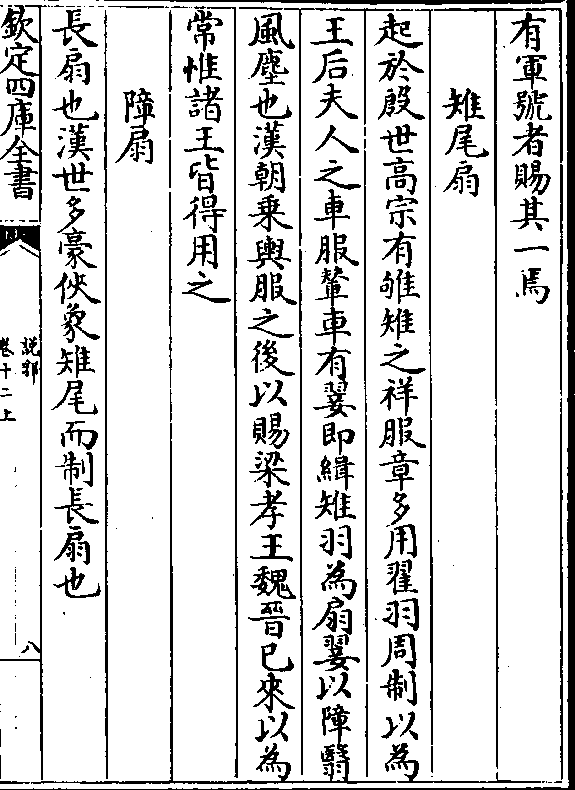 有軍號者賜其一焉
雉尾扇
起於殷世髙宗有雊雉之祥服章多用翟羽周制以為
王后夫人之車服輦車有翣即緝雉羽為扇翣以障翳
風塵也漢朝乗輿服之後以賜梁孝王魏晉已來以為
常惟諸王皆得用之
障扇
長扇也漢世多豪俠象雉尾而制長扇也
欽定四庫全書
說郛
卷十二上
八